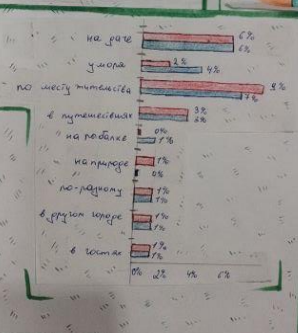 на даче 6%
6%
у моря 2%
4%
по месту жительства 9%
7%
в путешествиях 3%
3%
на рыбалке 0%
1%
на природе 1%
0%
по-разному 1%
1%
в другом городе 1%
1%
в гостях 1%
1%
0% 2% 4% 6%